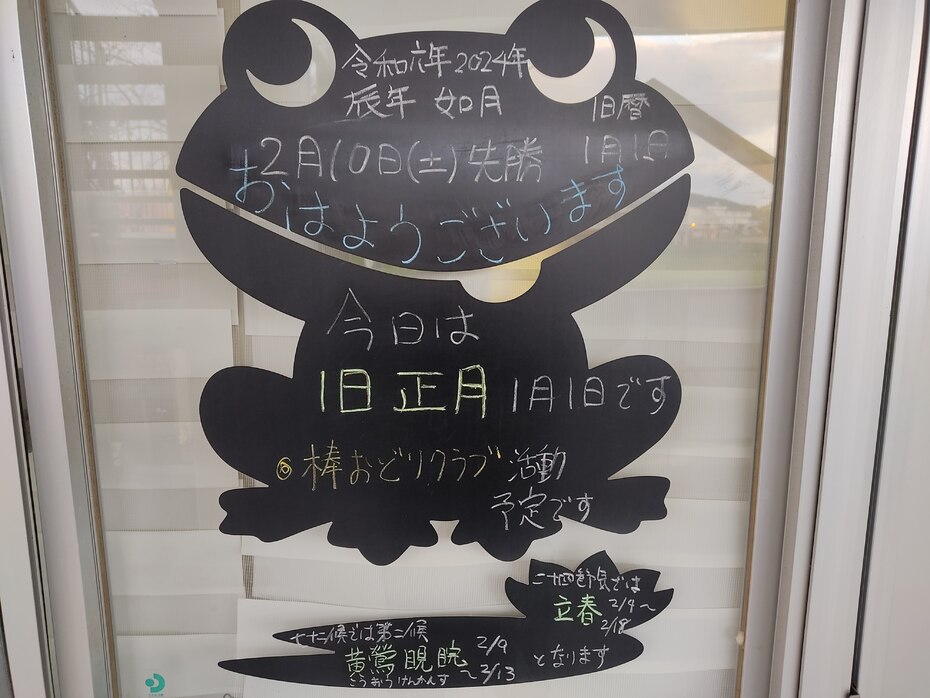 令和六年 2024年
辰年 如月
旧暦
1月1日
2月10日(土) 先勝
おはようございます
今日は
旧正月 1月1日です
◎棒おどりクラブ 活動
予定です
二十四節気では
立春 2/4〜
2/18
七十二候では第二候
黄鶯睍睆 2/9
こうおうけんかんす 〜2/13
となります